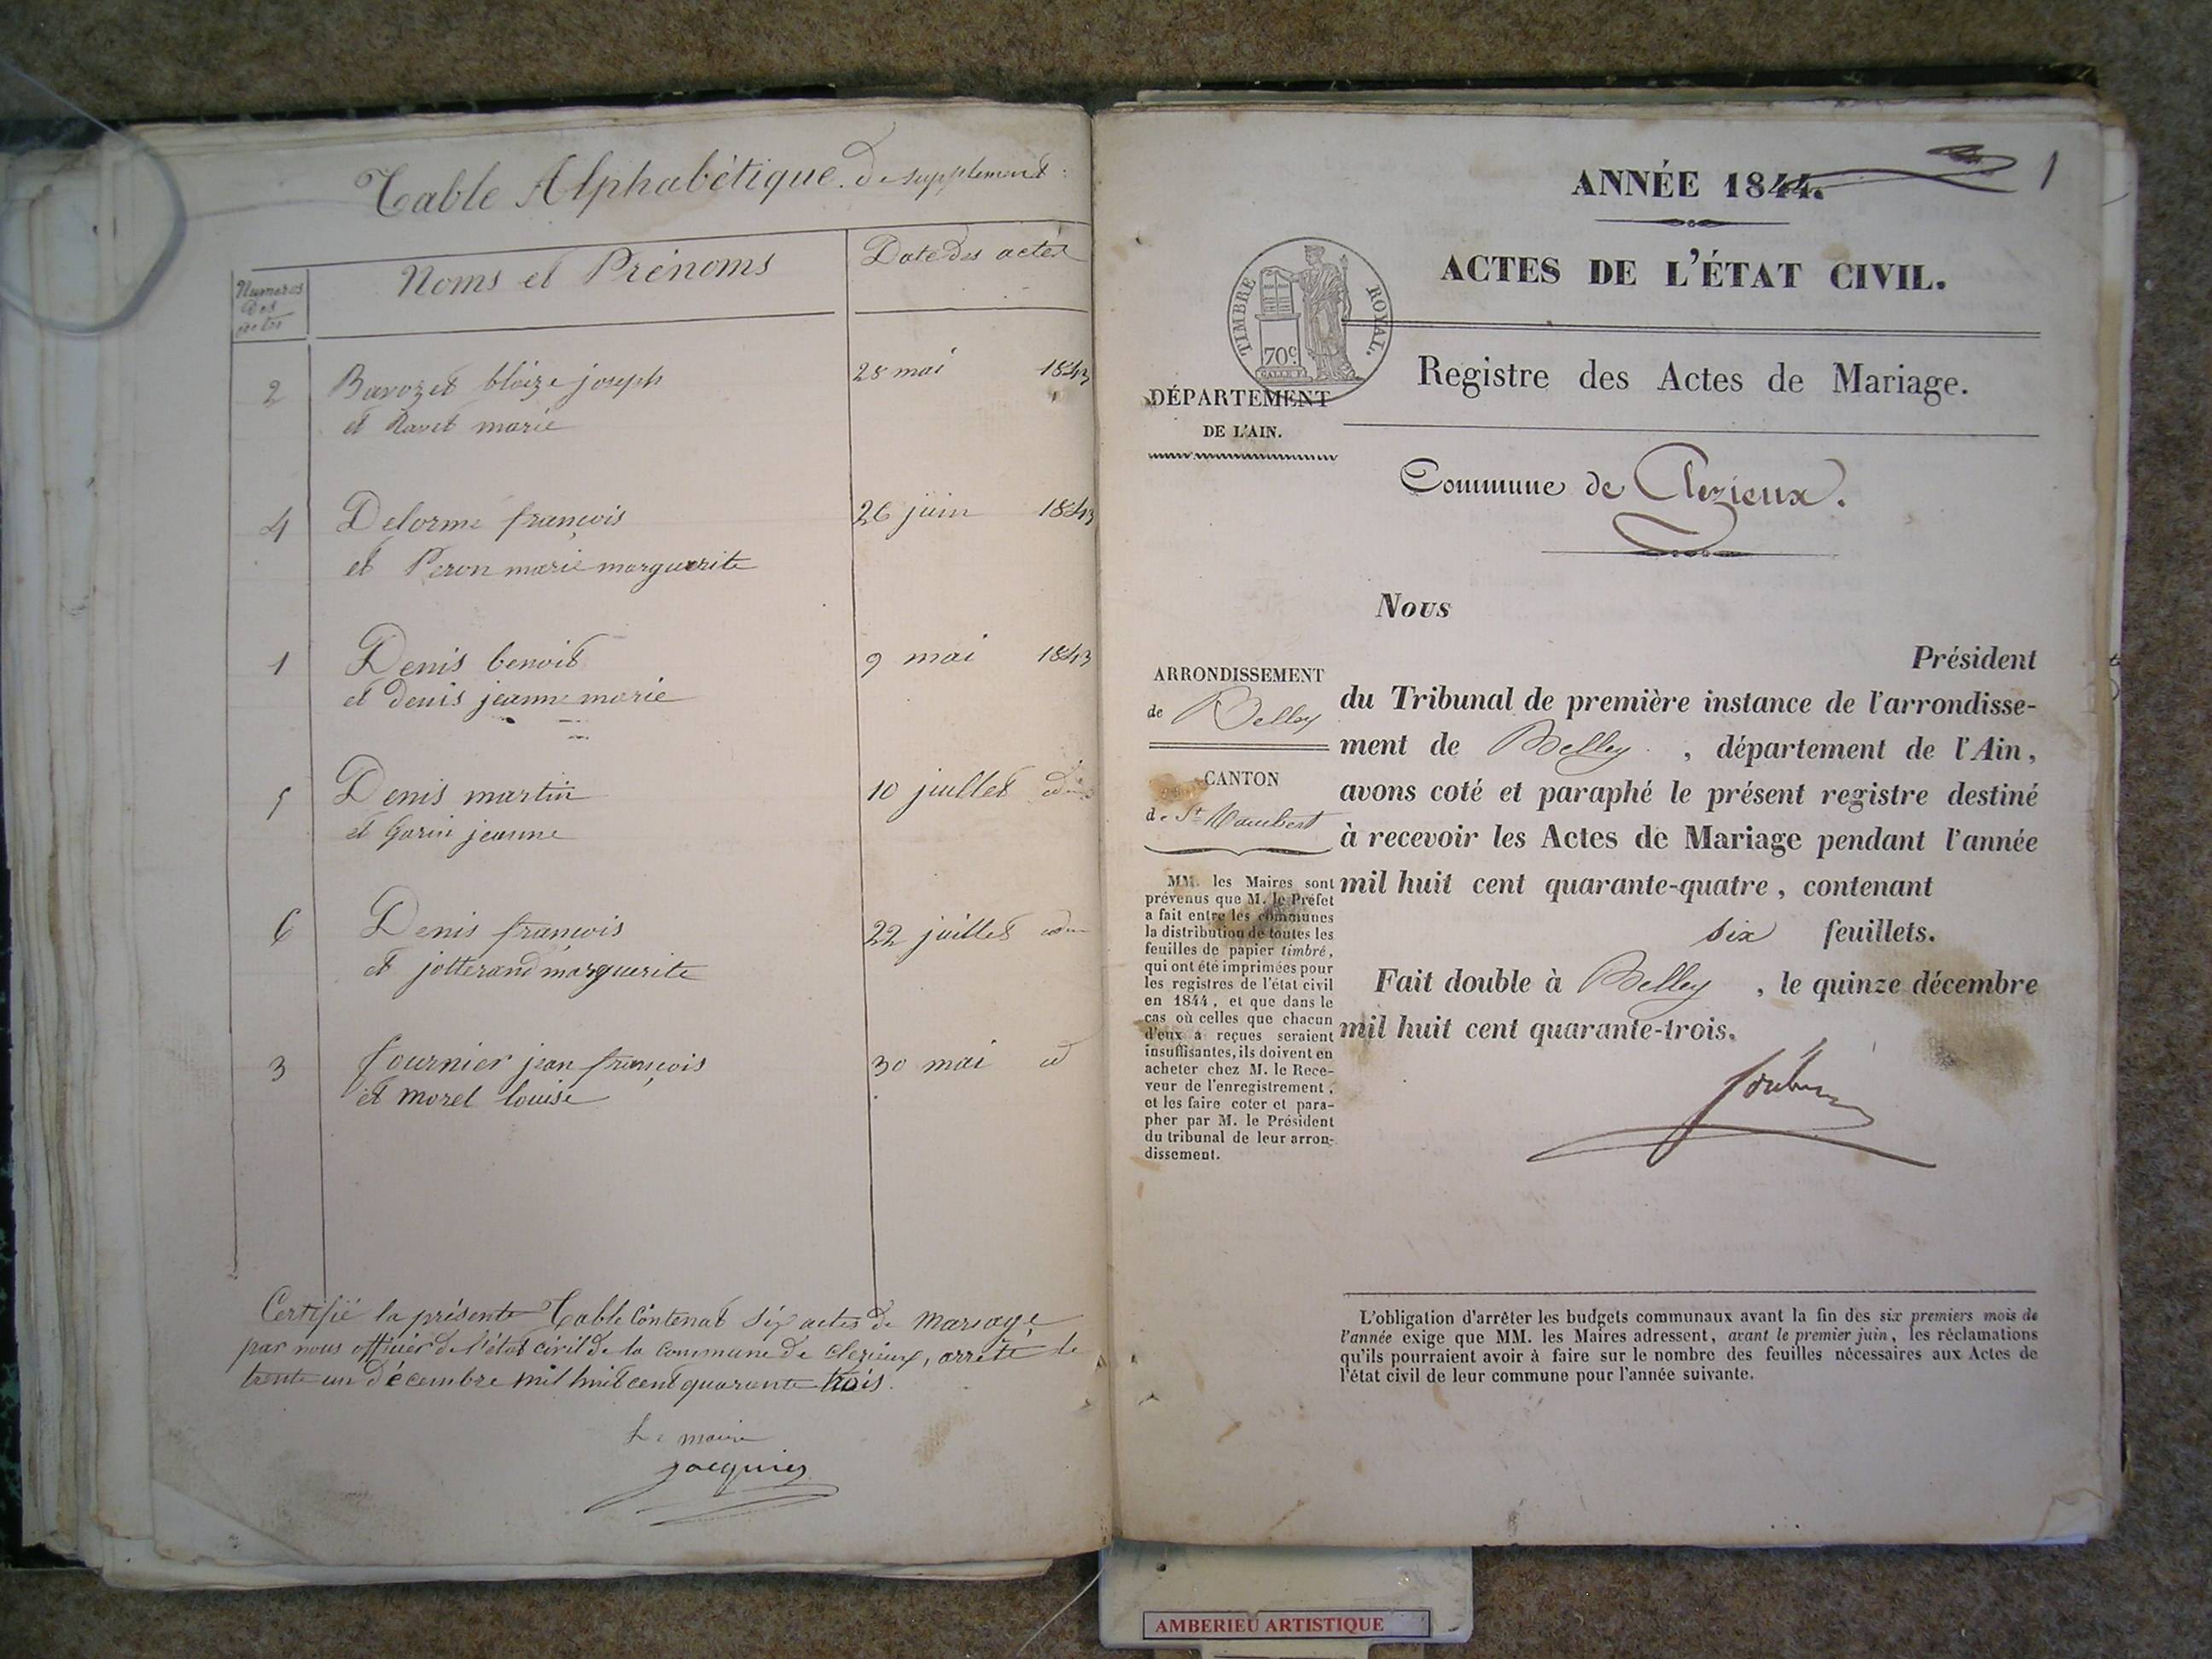 Table Alphabétique. de supplement :
Numeros
Des
actes
Noms et Prénoms
Date des actes
2
Bavozet blaize joseph
et Ravet marie
28 mai 1843
4
Delorme françois
et Peron marie marguerite
26 juin 1843
1
Denis benoit
et denis jeanne marie
9 mai 1843
5
Denis martin
et Garin jeanne
10 juillet
6
Denis françois
et jotterand marguerite
22 juillet
3
fournier jean françois
et morel louise
30 mai id
Certifié la présente Table Contenat six actes de mariage
par nous officier de l'état civil de la commune de clezieux, arrêté le
trente un décembre mil huit cent quarante trois.
Le maire
jacquier
1
ANNÉE 1844.
ACTES DE L'ÉTAT CIVIL.
TIMBRE ROYAL.
70c.
Registre des Actes de Mariage.
DÉPARTEMENT
DE L'AIN.
Commune de Clezieux.
Nous
Président
du Tribunal de première instance de l'arrondisse-
ment de Belley , département de l'Ain,
avons coté et paraphé le présent registre destiné
à recevoir les Actes de Mariage pendant l'année
mil huit cent quarante-quatre, contenant
six feuillets.
Fait double à Belley , le quinze décembre
mil huit cent quarante-trois.
ARRONDISSEMENT
de Belley
CANTON
de St Rambert
MM. les Maires sont
prévenus que M. le Préfet
a fait entre les communes
la distribution de toutes les
feuilles de papier timbré,
qui ont été imprimées pour
les registres de l'état civil
en 1844, et que dans le
cas où celles que chacun
d'eux a reçues seraient
insuffisantes, ils doivent en
acheter chez M. le Rece-
veur de l'enregistrement,
et les faire coter et para-
pher par M. le Président
du tribunal de leur arron-
dissement.
L'obligation d'arrêter les budgets communaux avant la fin des six premiers mois de
l'année exige que MM. les Maires adressent, avant le premier juin, les réclamations
qu'ils pourraient avoir à faire sur le nombre des feuilles nécessaires aux Actes de
l'état civil de leur commune pour l'année suivante.
AMBERIEU ARTISTIQUE